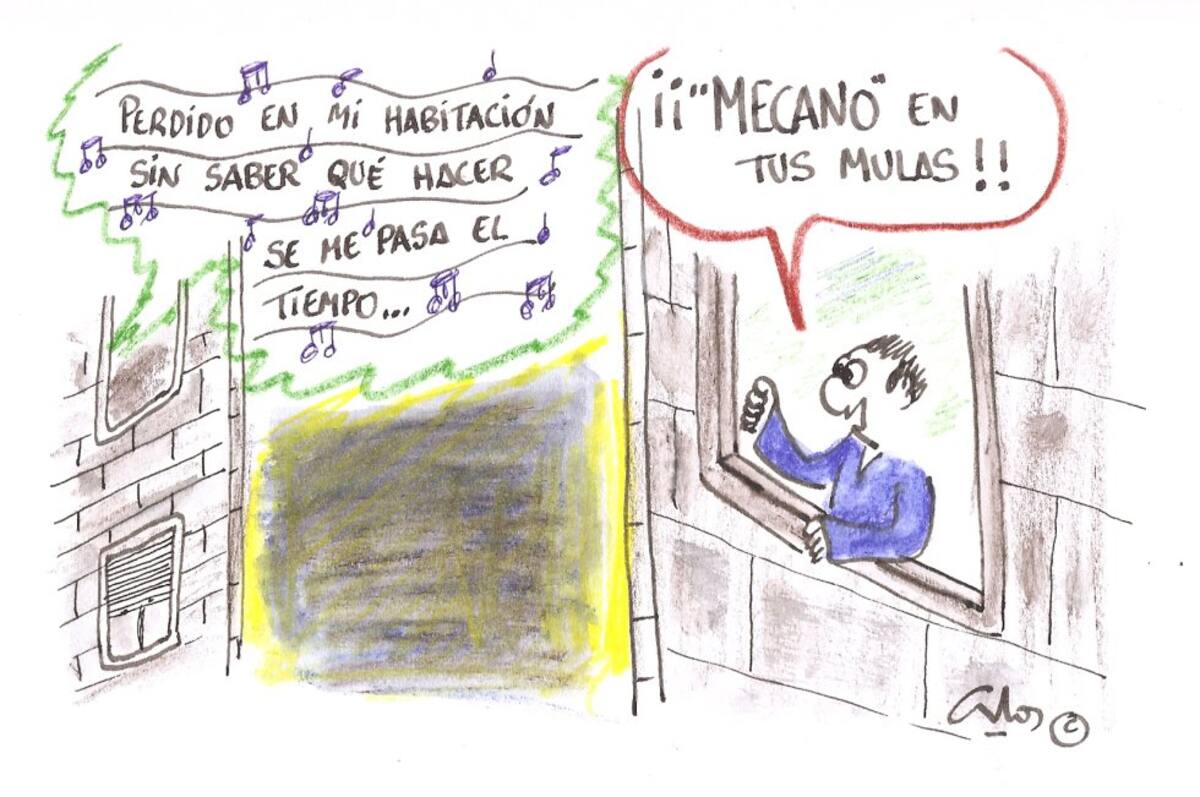 PERDIDO EN MI HABITACIÓN
SIN SABER QUÉ HACER
SE ME PASA EL
TIEMPO...
¡¡"MECANO" EN
TUS MULAS!!
©